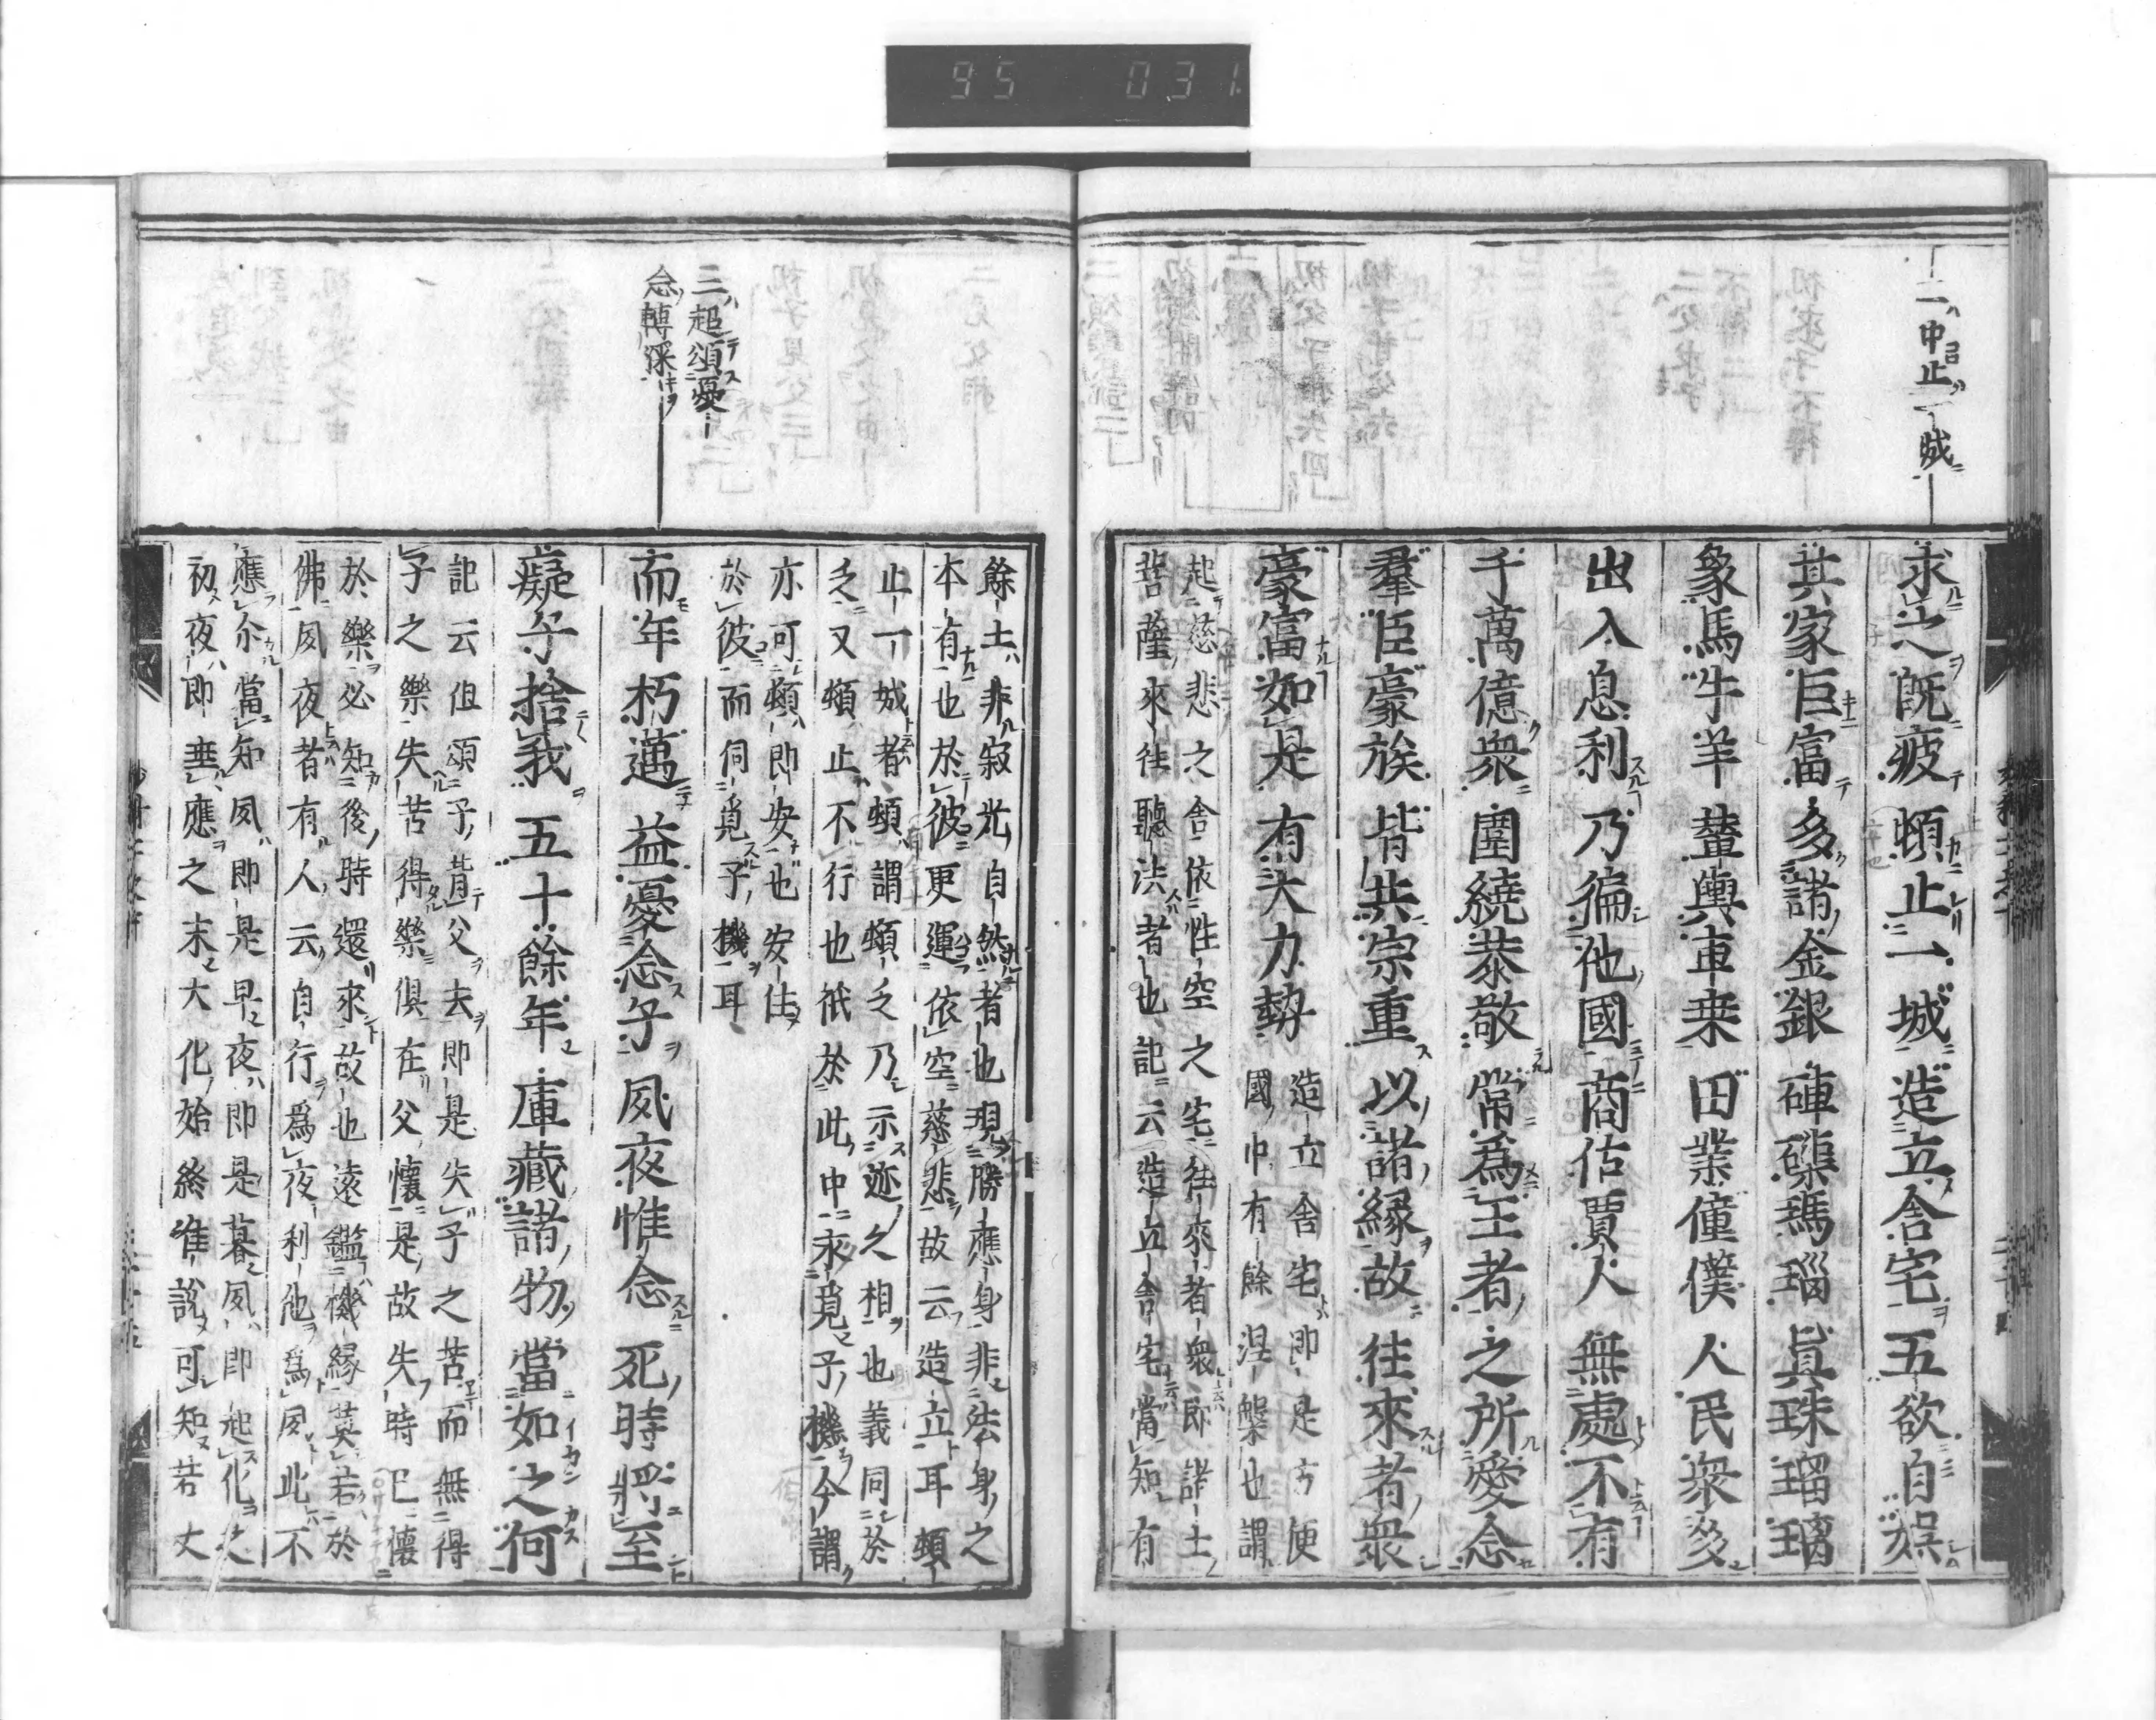 95 031
二中止一城
求之既疲頓止一城造立舍宅五欲自娛
其家巨富多諸金銀硨磲瑪瑙眞珠瑠璃
象馬牛羊輦輿車乘田業僮僕人民衆多
出入息利乃徧他國商估賈人無處不有
千萬億衆圍繞恭敬常爲王者之所愛念
羣臣豪族皆共宗重以諸緣故往來者衆
豪富如是有大力勢
造立舍宅即是方便
國中有餘涅槃也謂
起慈悲之舍依性空之宅往來者衆即諸土
菩薩來往聽法者也記云造立舍宅當知有
餘土非寂光自然者也現勝應身非法身之
本有也於彼更運依空慈悲故云造立耳頓
止一城者頓謂頓乏乃示迹久相也義同於
乏又頓止不行也祇於此中求覓子機今謂
亦可頓即安也安住
於彼而伺覓子機耳
三超頌憂
念轉深
而年朽邁益憂念子夙夜惟念死時將至
癡子捨我五十餘年庫藏諸物當如之何
記云但頌子背父去即是失子之苦而無得
子之樂失苦得樂俱在父懷是故失時已懷
於樂必知後時還來故也遠鑑機緣莫若於
佛夙夜者有人云自行爲夜利他爲夙此不
應尒當知夙即是早夜即是暮夙即起化之
初夜即垂應之末大化始終唯說可知若丈